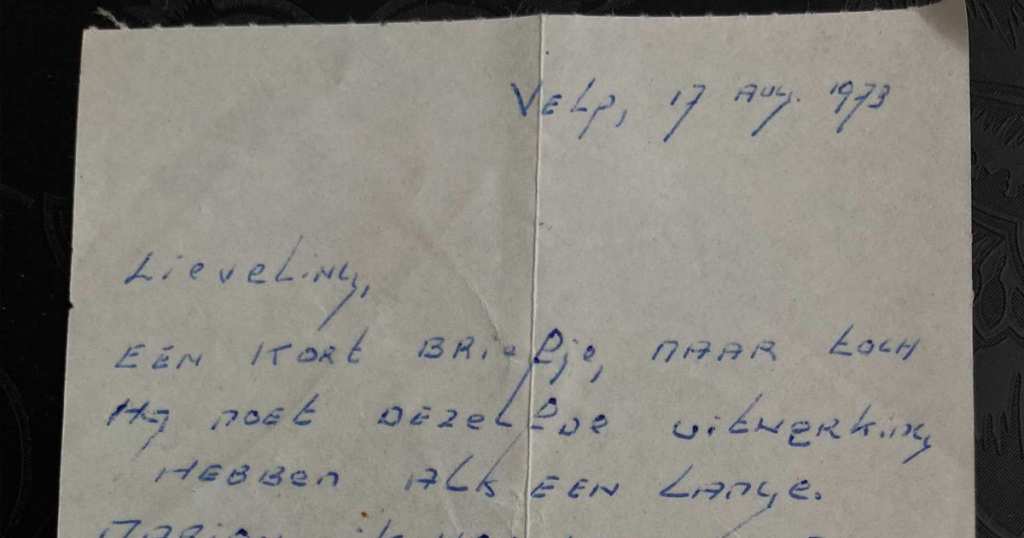 Velp, 17 Aug. 1973
Lieveling,
EEN KORT BRIEfje, MAAR tOCH
Hij MOET DEZELfDe uitwerking
HEBBEN ALS EEN LANGE.